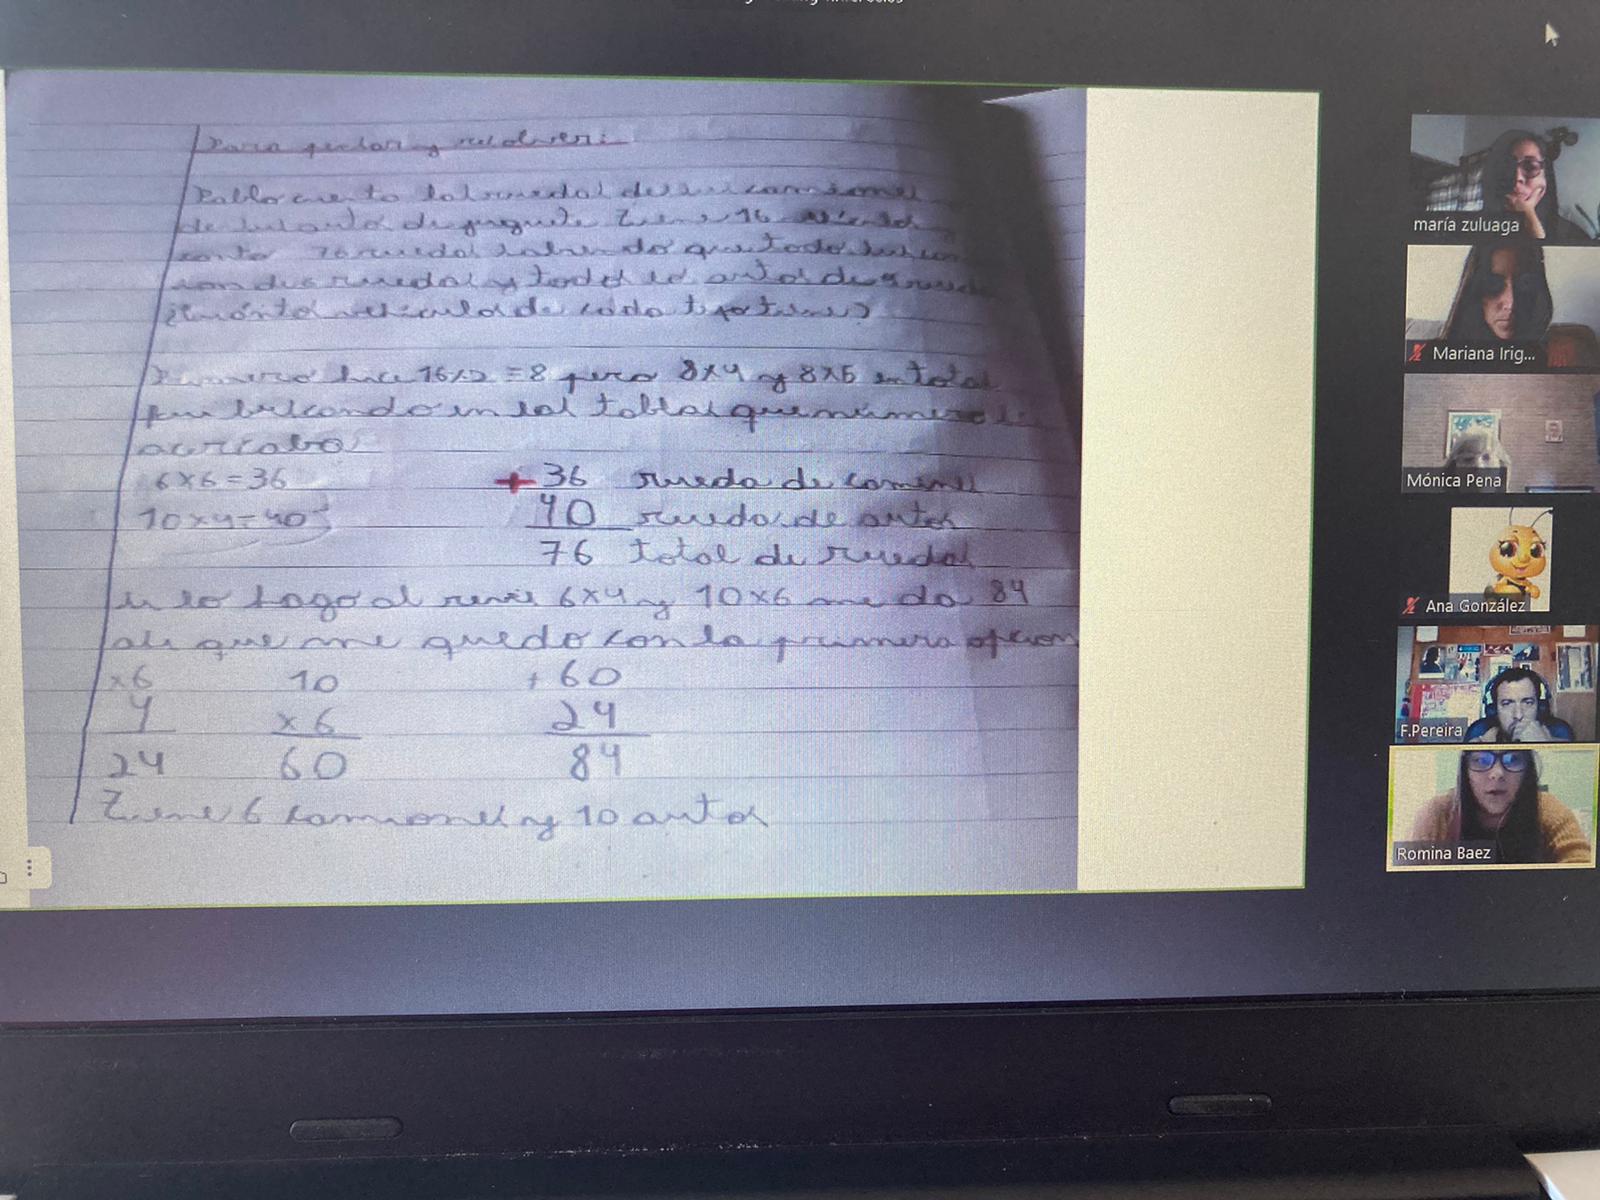 Para pensar y resolver:
Pablo cuento las ruedas de sus camiones
de juguete Tiene 16
conto 76 ruedas sabiendo que todo
ruedas y todos los autos de 4
¿cuántos vehiculos de cada tipo tiene?
Primero hice 16 2 = 8 pero 8x4 y 8x6 en total
fui buscando en las tablas que numero
acercaba
6x6=36
10x4=40
+ 36 rueda de camiones
40 ruedas de autos
76 total de ruedas
si lo hago al revés 6x4 y 10x6 me da 84
asi que me quedo con la primera opcion
x6 10 +60
4 x6 24
24 60 84
Tiene 6 camiones y 10 autos
maría zuluaga
Mariana Irig...
Mónica Pena
Ana González
F.Pereira
Romina Baez